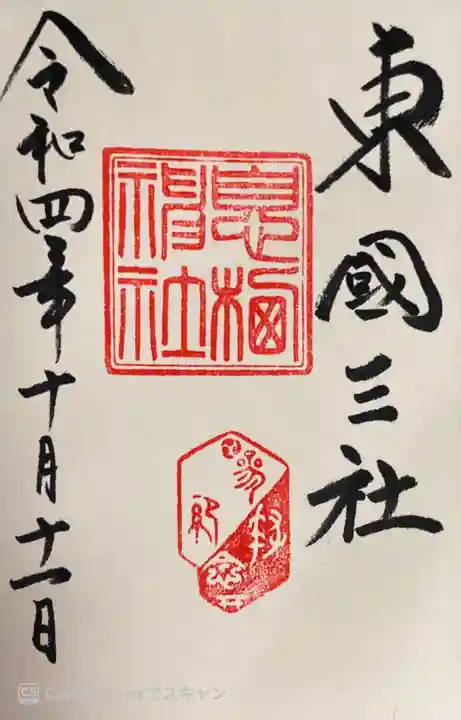 東國三社
息栖神社
参拝
記念
令和四年十月十一日
CS CamScannerでスキャン